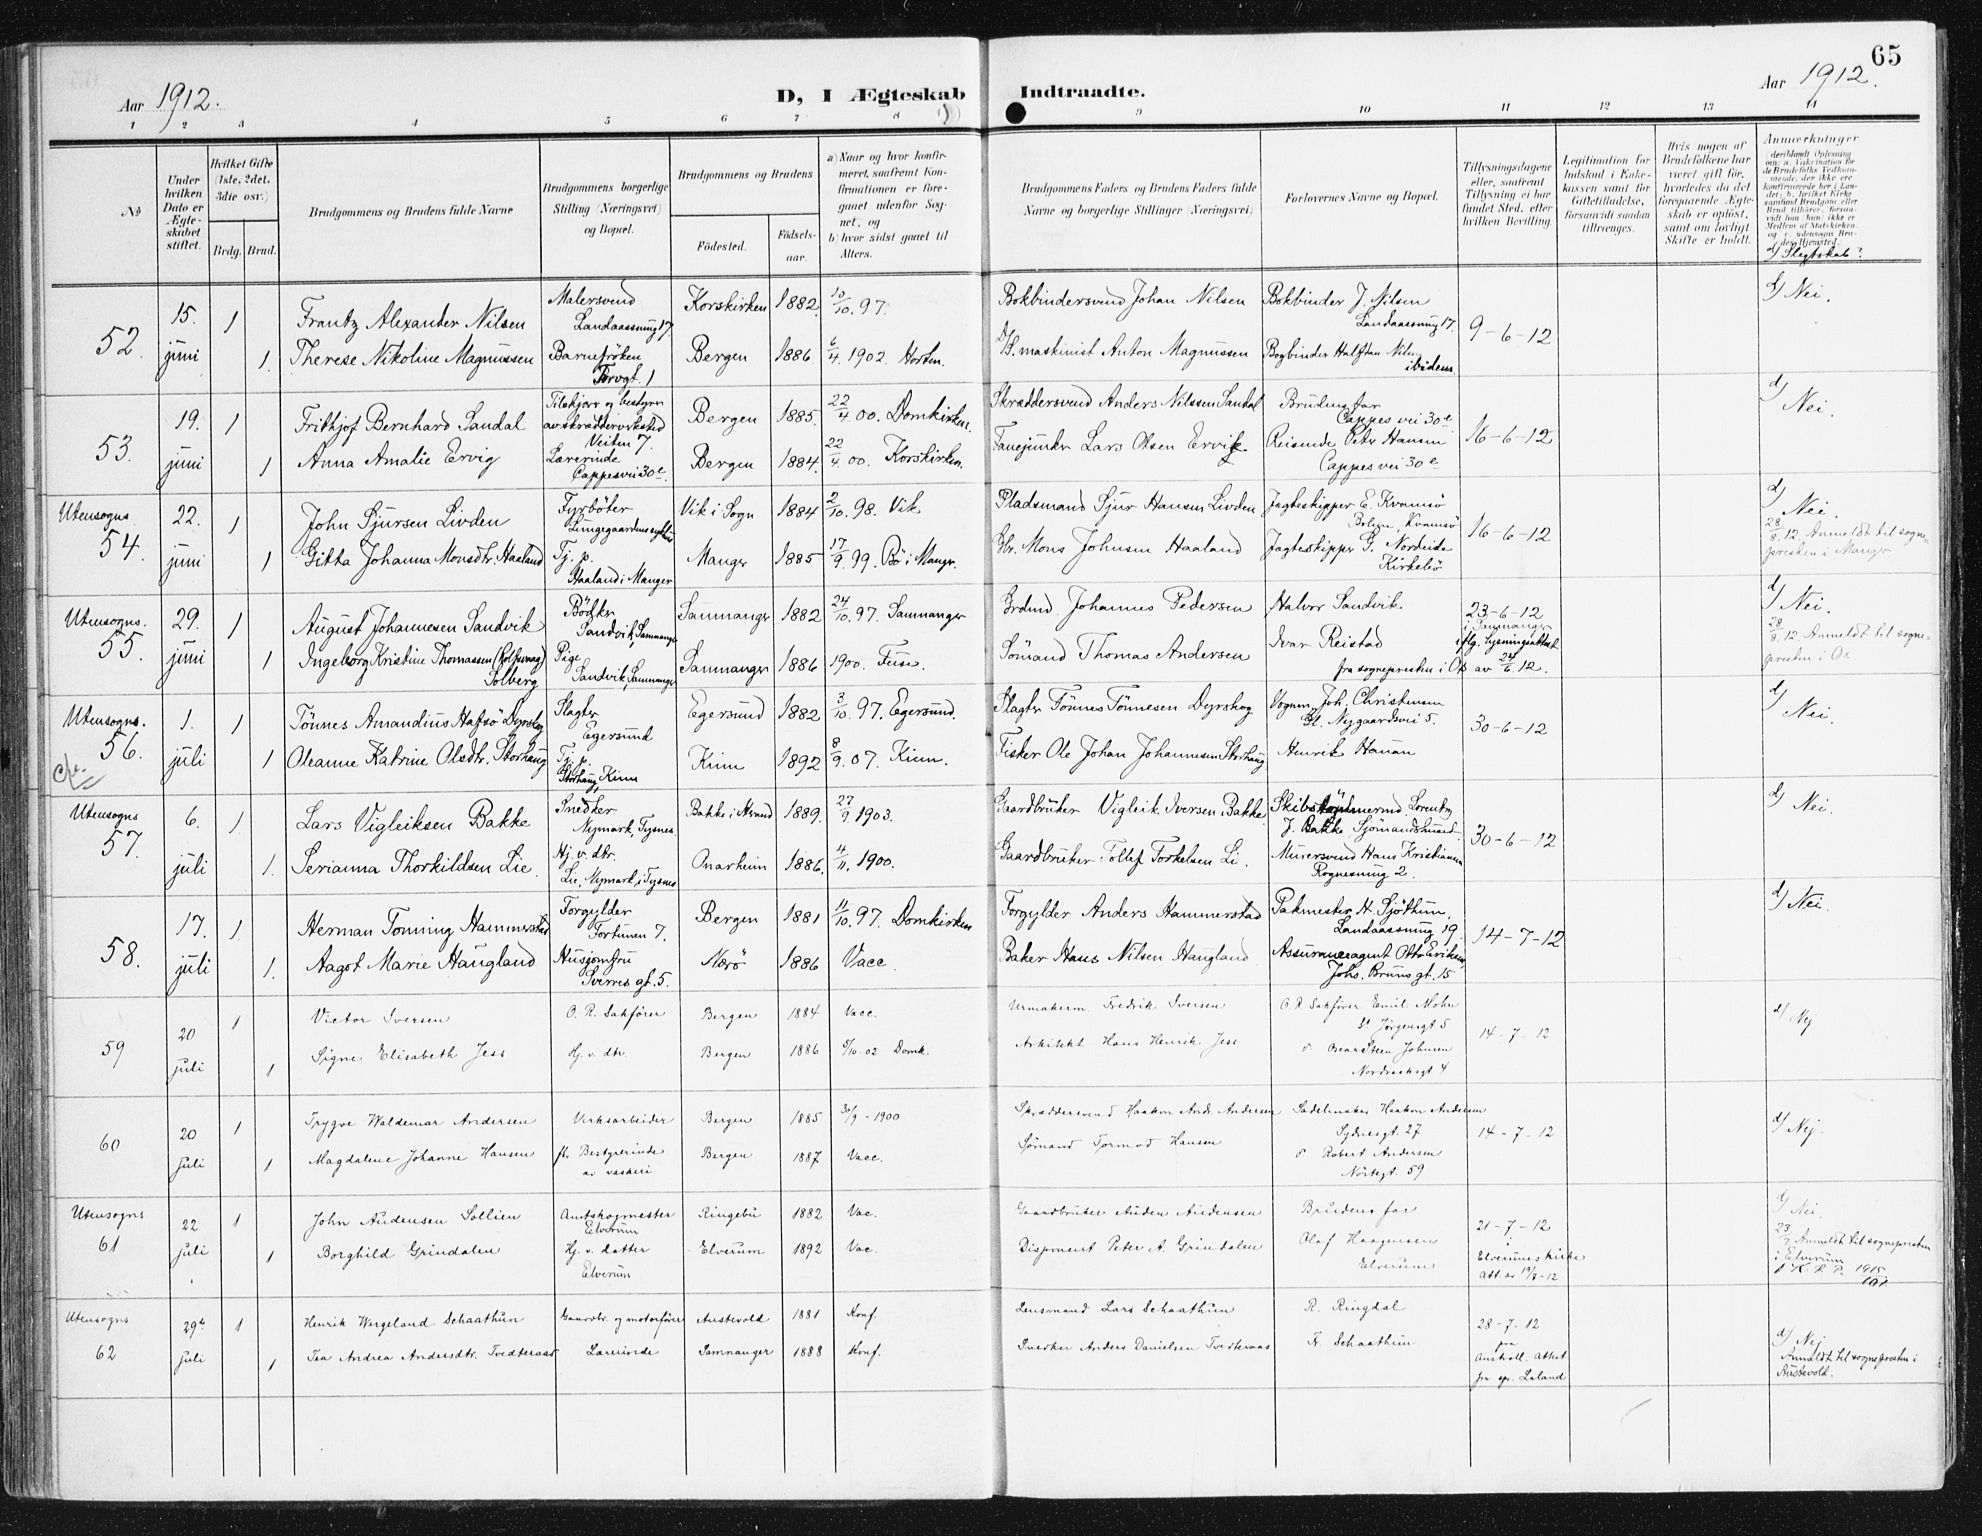 65
Aar 1912.
D, I Ægteskab Indtraadte.
Aar 1912.
1 2 3 4 5 6 7 8 9 10 11 12 13 14
No
Under hvilken Dato er Ægteskabet stiftet.
Hvilket Gifte (1ste, 2det, 3die osv.)
Brdg. Brud.
Brudgommens og Brudens fulde Navne
Brudgommens borgerlige Stilling (Næringsvei) og Bopæl.
Brudgommens og Brudens
Födested.
Födselsaar.
a) Naar og hvor konfirmeret, saafremt Konfirmationen er foregaaet udenfor Sognet, og
b) hvor sidst gaaet til Alters.
Brudgommens Faders og Brudens Faders fulde Navne og borgerlige Stillinger (Næringsvei)
Forlovernes Navne og Bopæl.
Tillysningsdagene eller, saafremt Tillysning ei har fundet Sted, efter hvilken Bevilling.
Legitimation for Indskud i Enkekassen samt for Giftetilladelse, forsaavidt saadan tiltrænges.
Hvis nogen af Brudefolkene har været gift før, hvorledes da det foregaaende Ægteskab er opløst, samt om lovligt Skifte er holdt.
Anmerkninger
d/ Slegtskab?
52. 15. juni 1
Frantz Alexander Nilsen
Malersvend
Landaassnug 17.
Korskirken 1882. 10/10. 97.
Bokbindersvend Johan Nilsen
Bokbinder J. Nilsen
Landaassnug 17.
9-6-12
d/ Nei.
1. Therese Nikoline Magnussen
Barnefröken
Torvgt. 1
Bergen 1886. 6/4. 1902. Horten.
maskinist Anton Magnussen
Bogbinder Halftan Nilsen
ibidem.
53. 19. juni 1
Frithjof Bernhard Sandal
Tilskjærer og bestyrer
av skrædderverksted
Veiten 7.
Bergen 1885. 22/4. 00. Domkirken.
Skræddersvend Anders Nilssen Sandal
Brudens far
Cappes vei 30e
16-6-12
d/ Nei.
1 Anna Amalie Ervig
Lærerinde
Cappesvei 30e
Bergen 1884. 22/4. 00. Korskirken.
Fanejunker Lars Olsen Ervik
Reisende Petr Hansen
Cappes vei 30e
Utensogns
54. 22. juni 1
John Sjursen Livden
Fyrböter
Lungegaardens
Vik i Sogn 1884 2/10. 98. Vik
Pladsmand Sjur Hansen Livden
Jagteskipper E. Kvamsö
Kvamsö
16-6-12
d/ Nei.
28/8. 12. Anmeldt til sognepresten i Manger
1 Gitta Johanna Monsdtr. Haaland
Tj. p.
Haaland i Manger
Manger 1885 17/9. 99. Bö i Mangr.
Gbr. Mons Johnsen Haaland
Jagteskipper G. Nordeide
Kirkebö
Utensogns.
55. 29. juni 1
August Johannesen Sandvik
Bödker
Sandvik, Samnanger
Samnanger 1882 24/10. 97. Samnanger
Grdmd. Johannes Pedersen
Halvor Sandvik.
23-6-12
i Samnanger
iflg. lysningsattest
fra sognepresten i Os av 24/6. 12.
d/ Nei.
28/8. 12. Anmeldt til sognepresten i Os
1 Ingeborg Kristine Thomassen (Rolfsvaag)
Solberg
Pige
Sandvik, Samnanger
Samnanger 1886 1900. Fuse.
Sömand Thomas Andersen
Ivar Reistad
Utensogns.
56. 1. juli 1
Tönnes Amandius Hafsö Dyrskog
Slagter
Egersund
Egersund 1882 3/10. 97. Egersund.
Slagter Tönnes Tönnesen Dyrskog
Vognm. Joh. Christensen
Gl. Nygaardsvei 5.
30-6-12
d/ Nei.
1 Oleanne Katrine Olsdtr. Storhaug
Tj. p.
Storhaug, Kinn
Kinn 1892 8/9. 07. Kinn.
Fisker Ole Johan Johannesen Storhaug
Henrik Hanan
Utensogns
57. 6. juli 1.
Lars Vigleiksen Bakke
Snedker
Nymark, Tysnes.
Bakke i Strand 1889. 27/9. 1903.
Gaardbruker Vigleik Iversen Bakke.
Skibstömmermd. Lorentz
J. Bakke, Sjömandshuset.
30-6-12
d/ Nei.
1. Serianna Thorkildsen Lie.
Hj. v. dtr.
Lie, Nymark, i Tysnes
Onarheim 1886. 4/11. 1900.
Gaardbruker Tollef Torkelsen Li.
Murersvend Hans Kristiansen
Rognesmug 2.
58. 17. juli 1.
Herman Tonning Hammerstad
Forgylder
Fortunen 7.
Bergen 1881 11/10. 97. Domkirken
Forgylder Anders Hammerstad
Pakmester H. Sjöthun,
Landaassnug 19.
14-7-12
d/ Nei.
1. Aagot Marie Haugland
Husjomfru
Sverres gt. 5.
Nærö 1886 Vacc.
Baker Hans Nilsen Haugland.
Assuranceagent Otto Eriksen,
Johs. Bruns gt. 15
59 20 juli 1
Victor Iversen
O. R. Sakfører
Bergen 1884 Vacc.
Urmakerm. Fredrik Iversen
O. R. Sakfører Emil Mohn
St Jørgensgt 5
14-7-12
d/ Nej
1 Signe Elisabeth Jess
Hj. v. dtr.
Bergen 1886 5/10-02 Domk.
Arkitekt Hans Henrik Jess
o Oscar Steen Johnsen
Nordnesgt 4
60 20 juli 1
Trygve Waldemar Andersen
Verksarbeider
Bergen 1885 30/9-1900
Skræddersvend Haakon Andr. Andersen
Sadelmaker Haakon Andersen
Sydnesgt. 27
14-7-12
d/ Nej.
1 Magdalene Johanne Hansen
fh. Bestyrerinde
av vaskeri
Bergen 1887 Vacc.
Sømand Tormod Hansen
o Robert Andersen
Nöstegt. 59
Utensogns
61 22 juli 1
John Audensen Sollien
Amtskogmester
Elverum
Ringebu 1882 Vac.
Gaardbruker Auden Audensen
Brudens far
21-7-12
i
Elverums kirke
Att. av 19/7-12
d/ Nei.
23/7. Anmeldt til sognepresten
i Elverum
1 Borghild Grindalen
Hj. v. datter
Elverum
Elverum 1892 Vac.
Disponent Peter A. Grindalen
Olaf Haagensen
Elverum
Utensogns
62 29de juli 1
Henrik Wergeland Schaathun
Gaardbr. og motorfører
Austevold 1881 Konf.
Lensmand Lars Schaathun
R. Ringdal
28-7-12
fra
Austvoll. Attest
fra spr. Laland
d/ Nej
Anmeldt til sognepresten i
Austevold.
1 Tea Andrea Andersdtr. Tvedteraas
Lærerinde
Samnanger 1888 Konf.
Snedker Anders Danielsen Tvedteraas
Fr. Schaathun